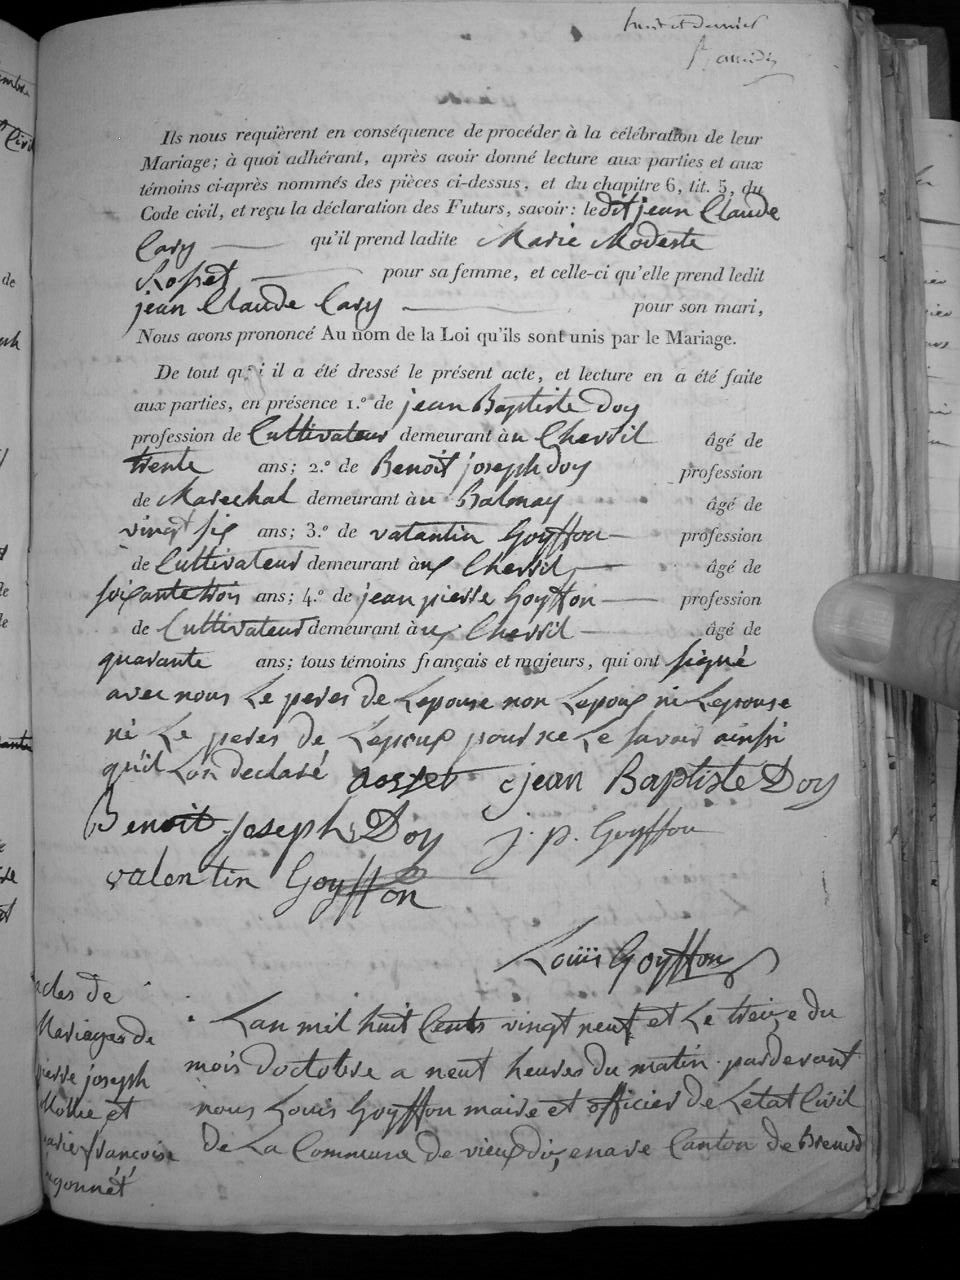 huit et dernier
Ils nous requièrent en conséquence de procéder à la célébration de leur
Mariage; à quoi adhérant, après avoir donné lecture aux parties et aux
témoins ci-après nommés des pièces ci-dessus, et du chapitre 6, tit. 5, du
Code civil, et reçu la déclaration des Futurs, savoir: le dit jean Claude
Cary qu'il prend ladite Marie Modeste
Rosset pour sa femme, et celle-ci qu'elle prend ledit
jean Claude Cary pour son mari,
Nous avons prononcé Au nom de la Loi qu'ils sont unis par le Mariage.
De tout quoi il a été dressé le présent acte, et lecture en a été faite
aux parties, en présence 1.º de jean Baptiste Doy
profession de Cultivateur demeurant à u Chevril âgé de
trente ans; 2.º de Benoit joseph Doy profession
de Marechal demeurant à u Balmay âgé de
vingt six ans; 3.º de vatantin Goyffon profession
de Cultivateur demeurant à u Chevril âgé de
soixante trois ans; 4.º de jean pierre Goyffon profession
de Cultivateur demeurant à u Chevril âgé de
quarante ans; tous témoins français et majeurs, qui ont signé
avec nous Le peres de Lepouse non Lepoux ni Lepouse
ni Le peres de Lepoux pour ne Le savoir ainsi
qu'il Lon declaré rosset jean Baptiste Doy
Benoit joseph Doy j. p. Goyffon
valentin Goyffon
Louis Goyffon
actes de
Mariages de
pierre joseph
Mollie et
marie françoise
Lan mil huit Cents vingt neuf et Le treize du
mois doctobre a neuf heures du matin pardevant
nous Louis Goyffon maire et officier de Letat Civil
de La Commune de vieux dizenave Canton de Brenod